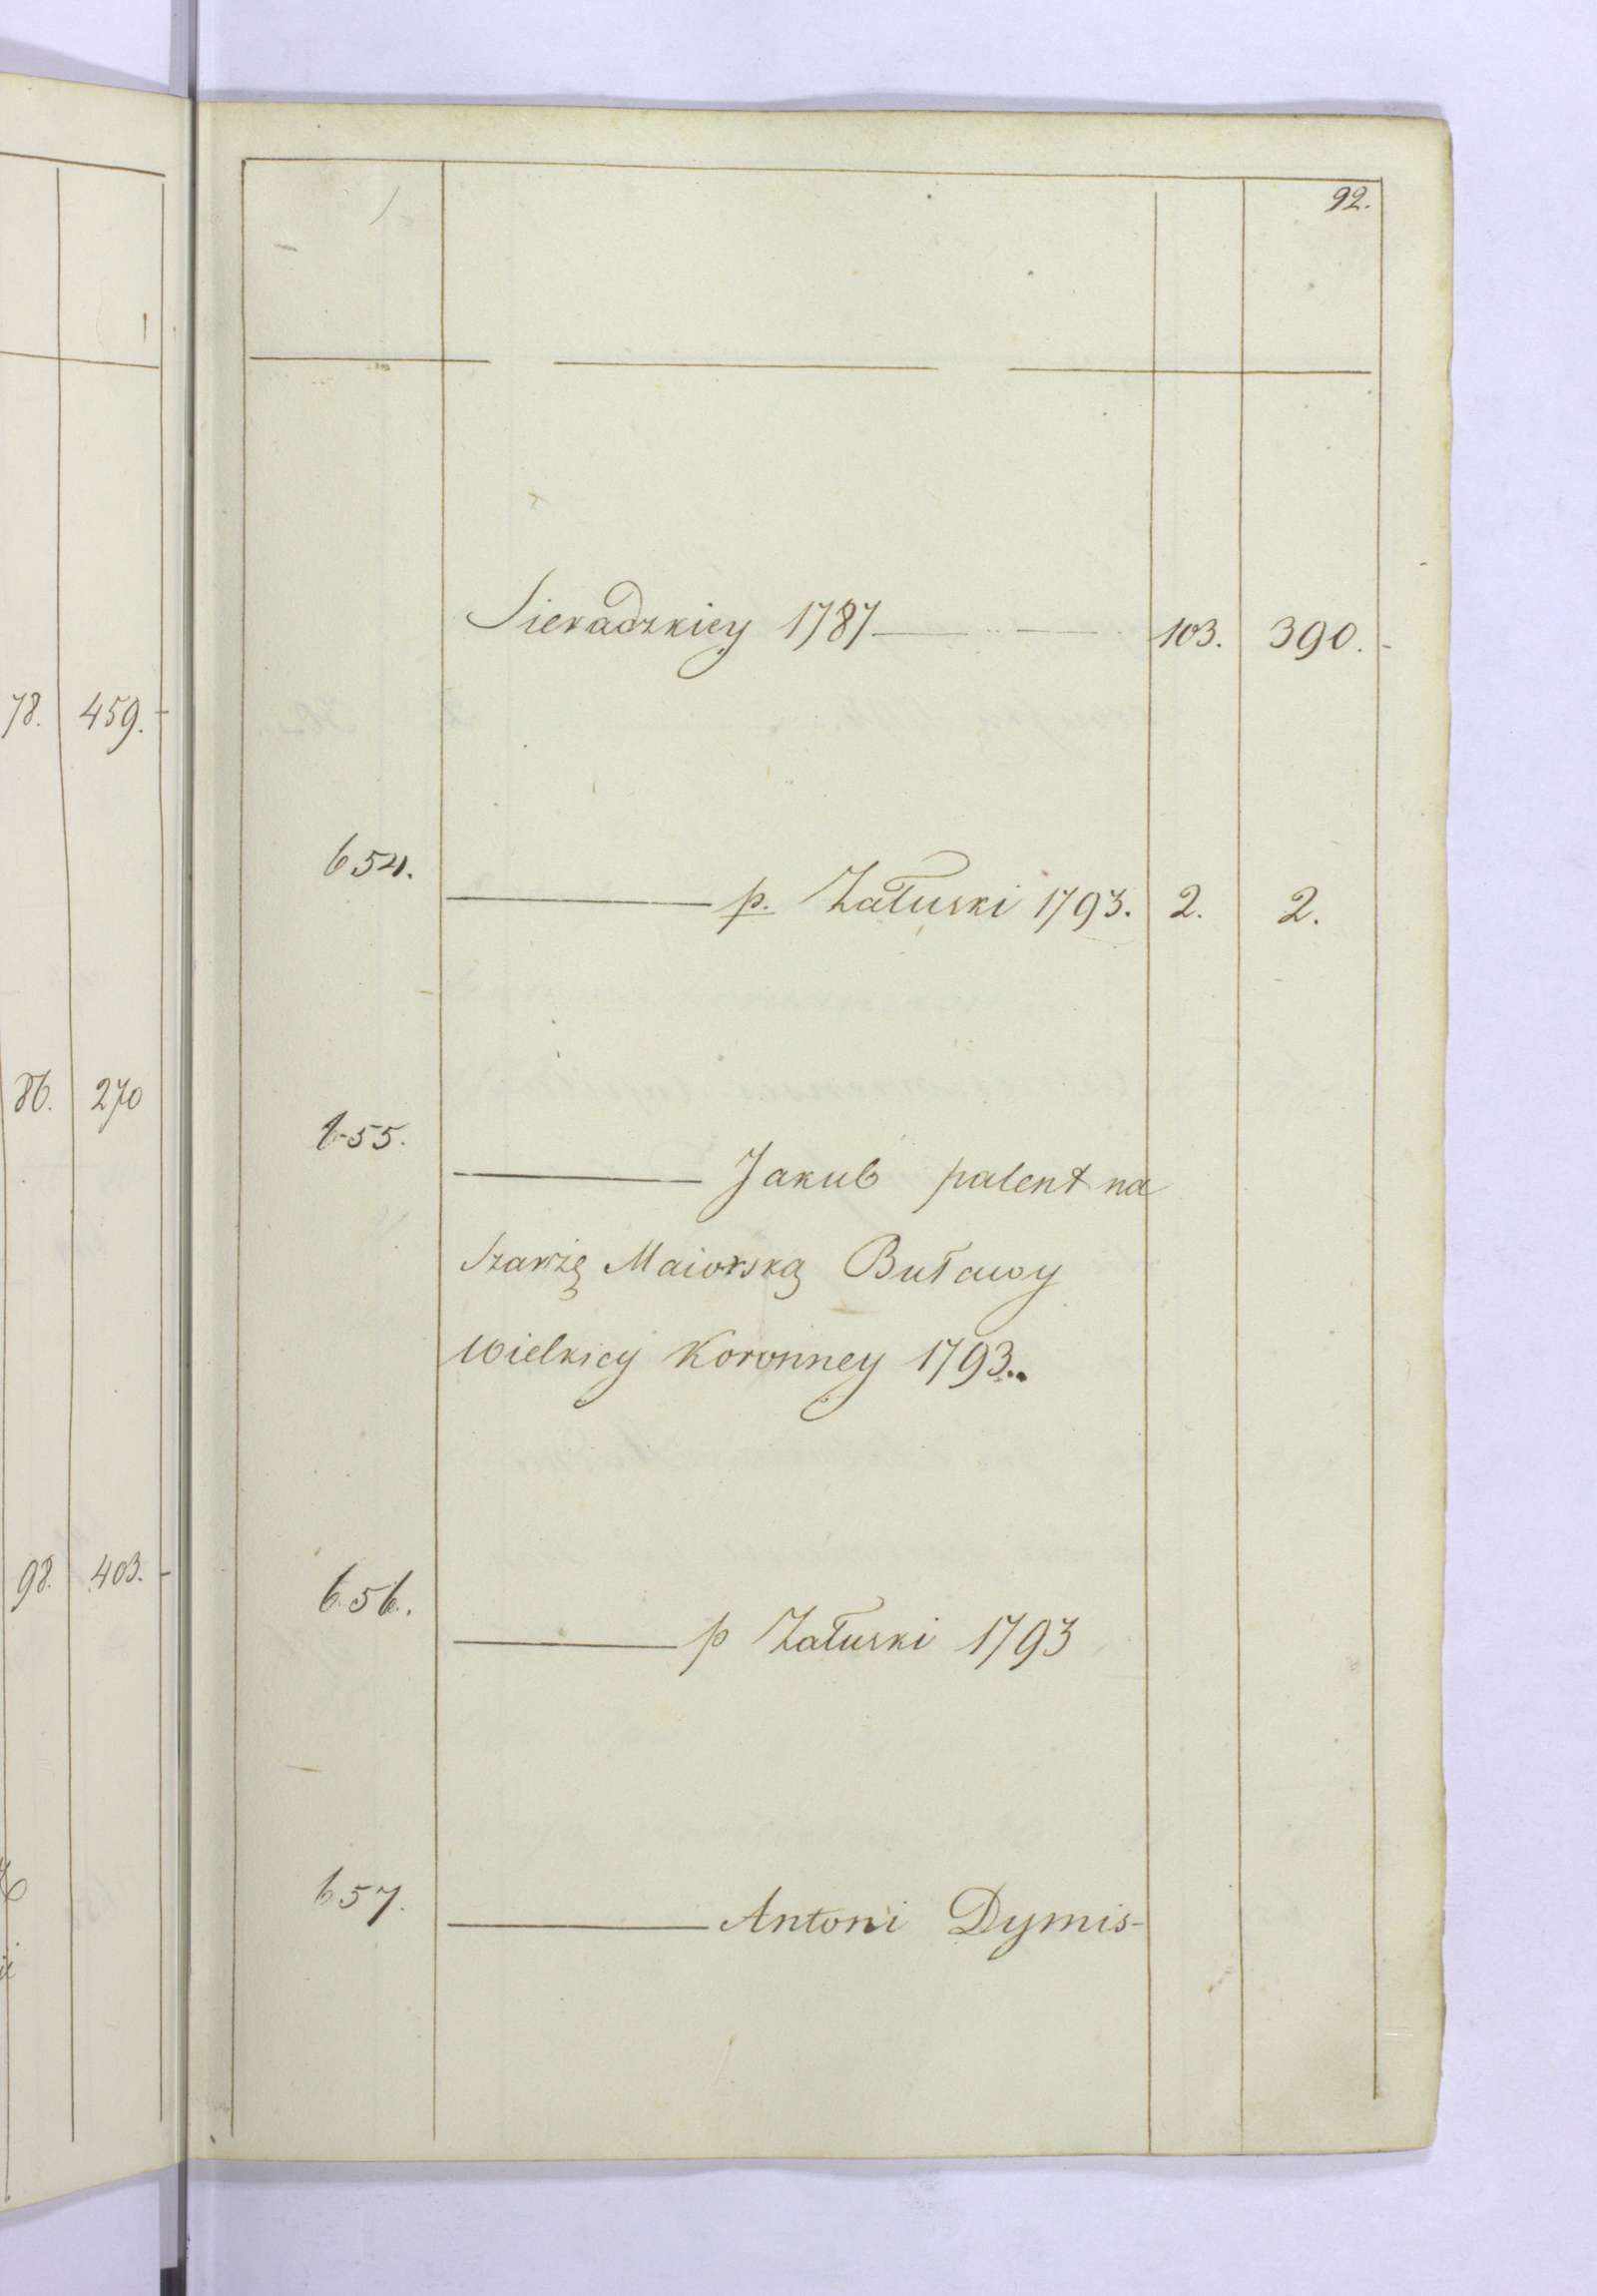 92.
Sieradzkiey 1787 103. 390.
78. 459.
654.
p. Załuski 1793. 2. 2.
86. 270
655.
Jakub patent na
Szarżę Maiorską Buławy
Wielkiey Koronney 1793..
98. 403.
656.
p Załuski 1793
657.
Antoni Dymis-